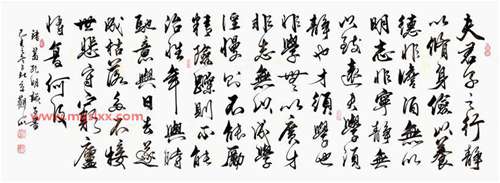 夫君子之行靜
以修身儉以養
德非澹泊無以
明志非寧靜無
以致遠夫學須
靜也才須學也
非學無以廣才
非志無以成學
淫慢則不能勵
精險躁則不能
治性年與時
馳意與日去遂
成枯落多不接
世悲守窮廬
將復何及
諸葛孔明誡子書